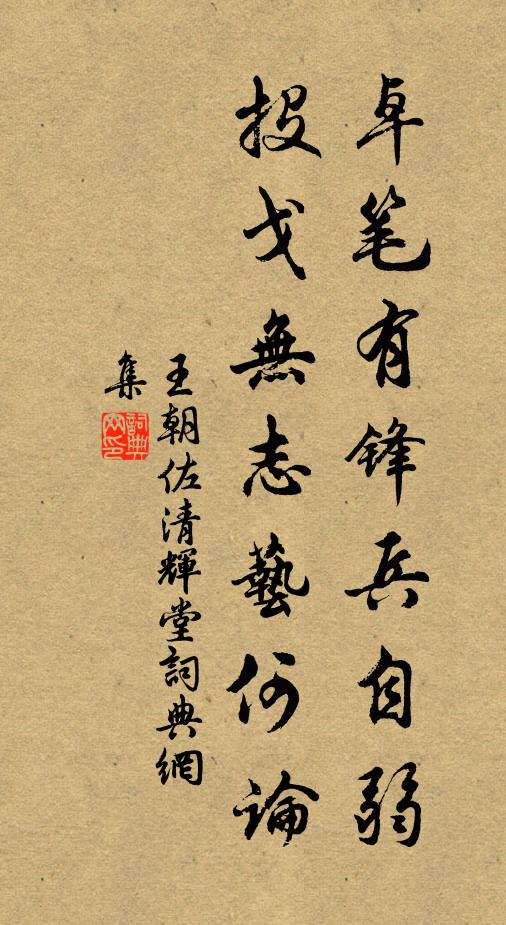 卓笔有锋兵自弱
投戈無志藝何論
王朝佐清輝堂詞典網
集
詞典
网印